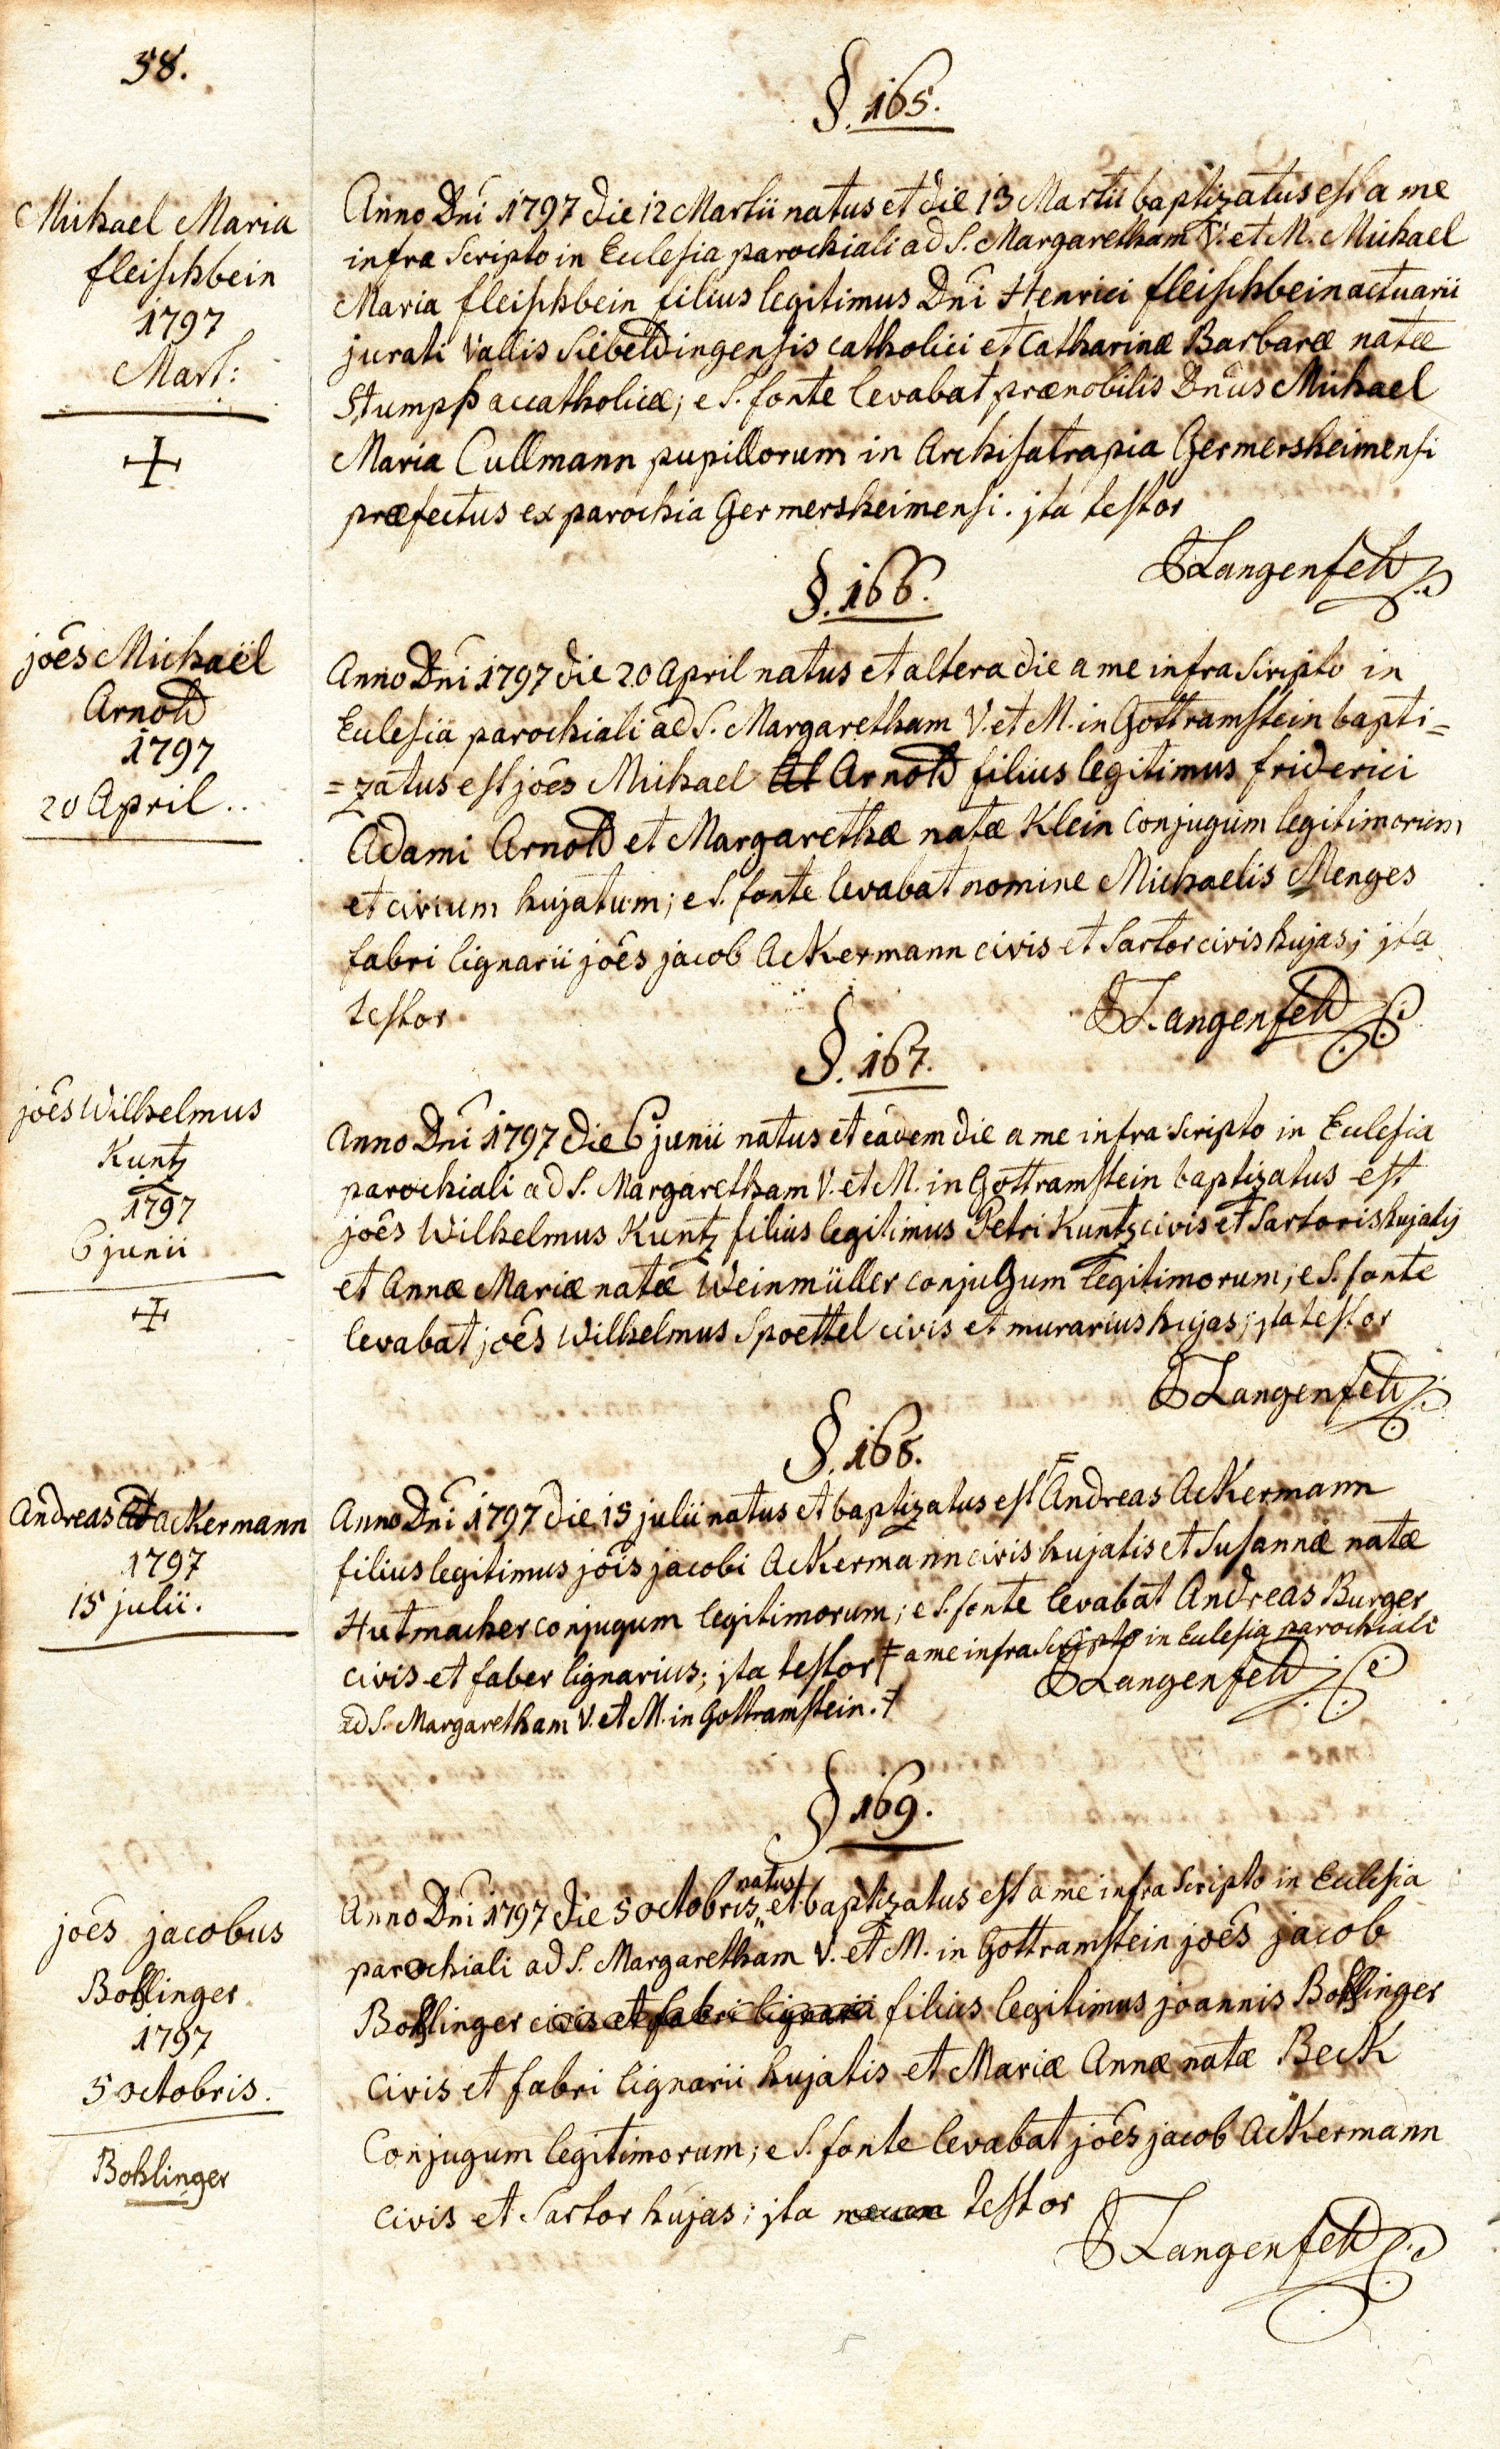 58.
§. 165.
Michael Maria
fleischbein
1797
Mart:
Anno Dni 1797 die 12 Martii natus et die 13 Martii baptizatus est a me
infra Scripto in Ecclesia parochiali ad S. Margaretham V. et M. Michael
Maria fleischbein filius legitimus Dni Henrici fleischbein actuarii
jurati Vallis Siebeldingensis catholici et Catharinæ Barbaræ natæ
Stumpf accatholicæ; e S. fonte levabat prænobilis Dnus Michael
Maria Cullmann pupillorum in Archisatrapia Germersheimensi
præfectus ex parochia Germersheimensi. jta testor
Langenfeld
§. 166.
joês Michaël
Arnold
1797
20 April..
Anno Dni 1797 die 20 April natus et altera die a me infra Scripto in
Ecclesia parochiali ad S. Margaretham V. et M. in Gottramstein bapti=
=zatus est joês Michael Arnold filius legitimus friderici
Adami Arnold et Margarethæ natæ Klein Conjugum legitimorum
et civium hujatum; e S. fonte levabat nomine Michaelis Menges
fabri lignarii joês jacob Ackermann civis et Sartor civis hujas; jta
testor
Langenfeld
§. 167.
joês Wilhelmus
Kuntz
1797
6 junii
Anno Dni 1797 die 6 junii natus et eadem die a me infra Scripto in Ecclesia
parochiali ad S. Margaretham V. et M. in Gottramstein baptizatus est
joês Wilhelmus Kuntz filius legitimus Petri Kuntz civis et Sartoris hujatis
et Annæ Mariæ natæ Weinmüller conjugum legitimorum; e S. fonte
levabat joês Wilhelmus Spoettel civis et murarius hujas; jta testor
Langenfeld
§. 168.
Andreas Ackermann
1797
15 julii.
Anno Dni 1797 die 15 julii natus et baptizatus est ‡ Andreas Ackermann
filius legitimus jois jacobi Ackermann civis hujatis et Susannæ natæ
Hutmacher conjugum legitimorum; e S. fonte levabat Andreas Burger
civis et faber lignarius; jta testor ‡ a me infra Scripto in Ecclesia parochiali
Langenfeld
ad S. Margaretham V. et M. in Gottramstein. ‡
§ 169.
joês jacobus
Bohlinger
1797
5 octobris.
Bohlinger
Anno Dni 1797 die 5 octobris natus et baptizatus est a me infra Scripto in Ecclesia
parochiali ad S. Margaretham V. et M. in Gottramstein joês jacob
Bohlinger civis et fabri lignarii filius legitimus joannis Bohlinger
civis et fabri lignarii hujatis et Mariæ Annæ natæ Beck
Conjugum legitimorum; e S. fonte levabat joês jacob Ackermann
civis et Sartor hujas; jta testor
Langenfeld